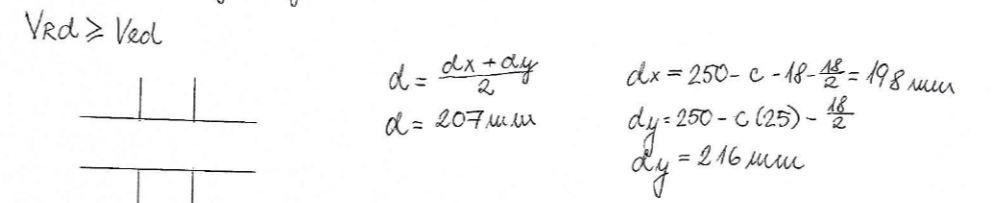 VRd ≥ Ved
d = (dx + dy)/2
d = 207 mm
dx = 250 - c - 18 - 18/2 = 198 mm
dy = 250 - c (25) - 18/2
dy = 216 mm